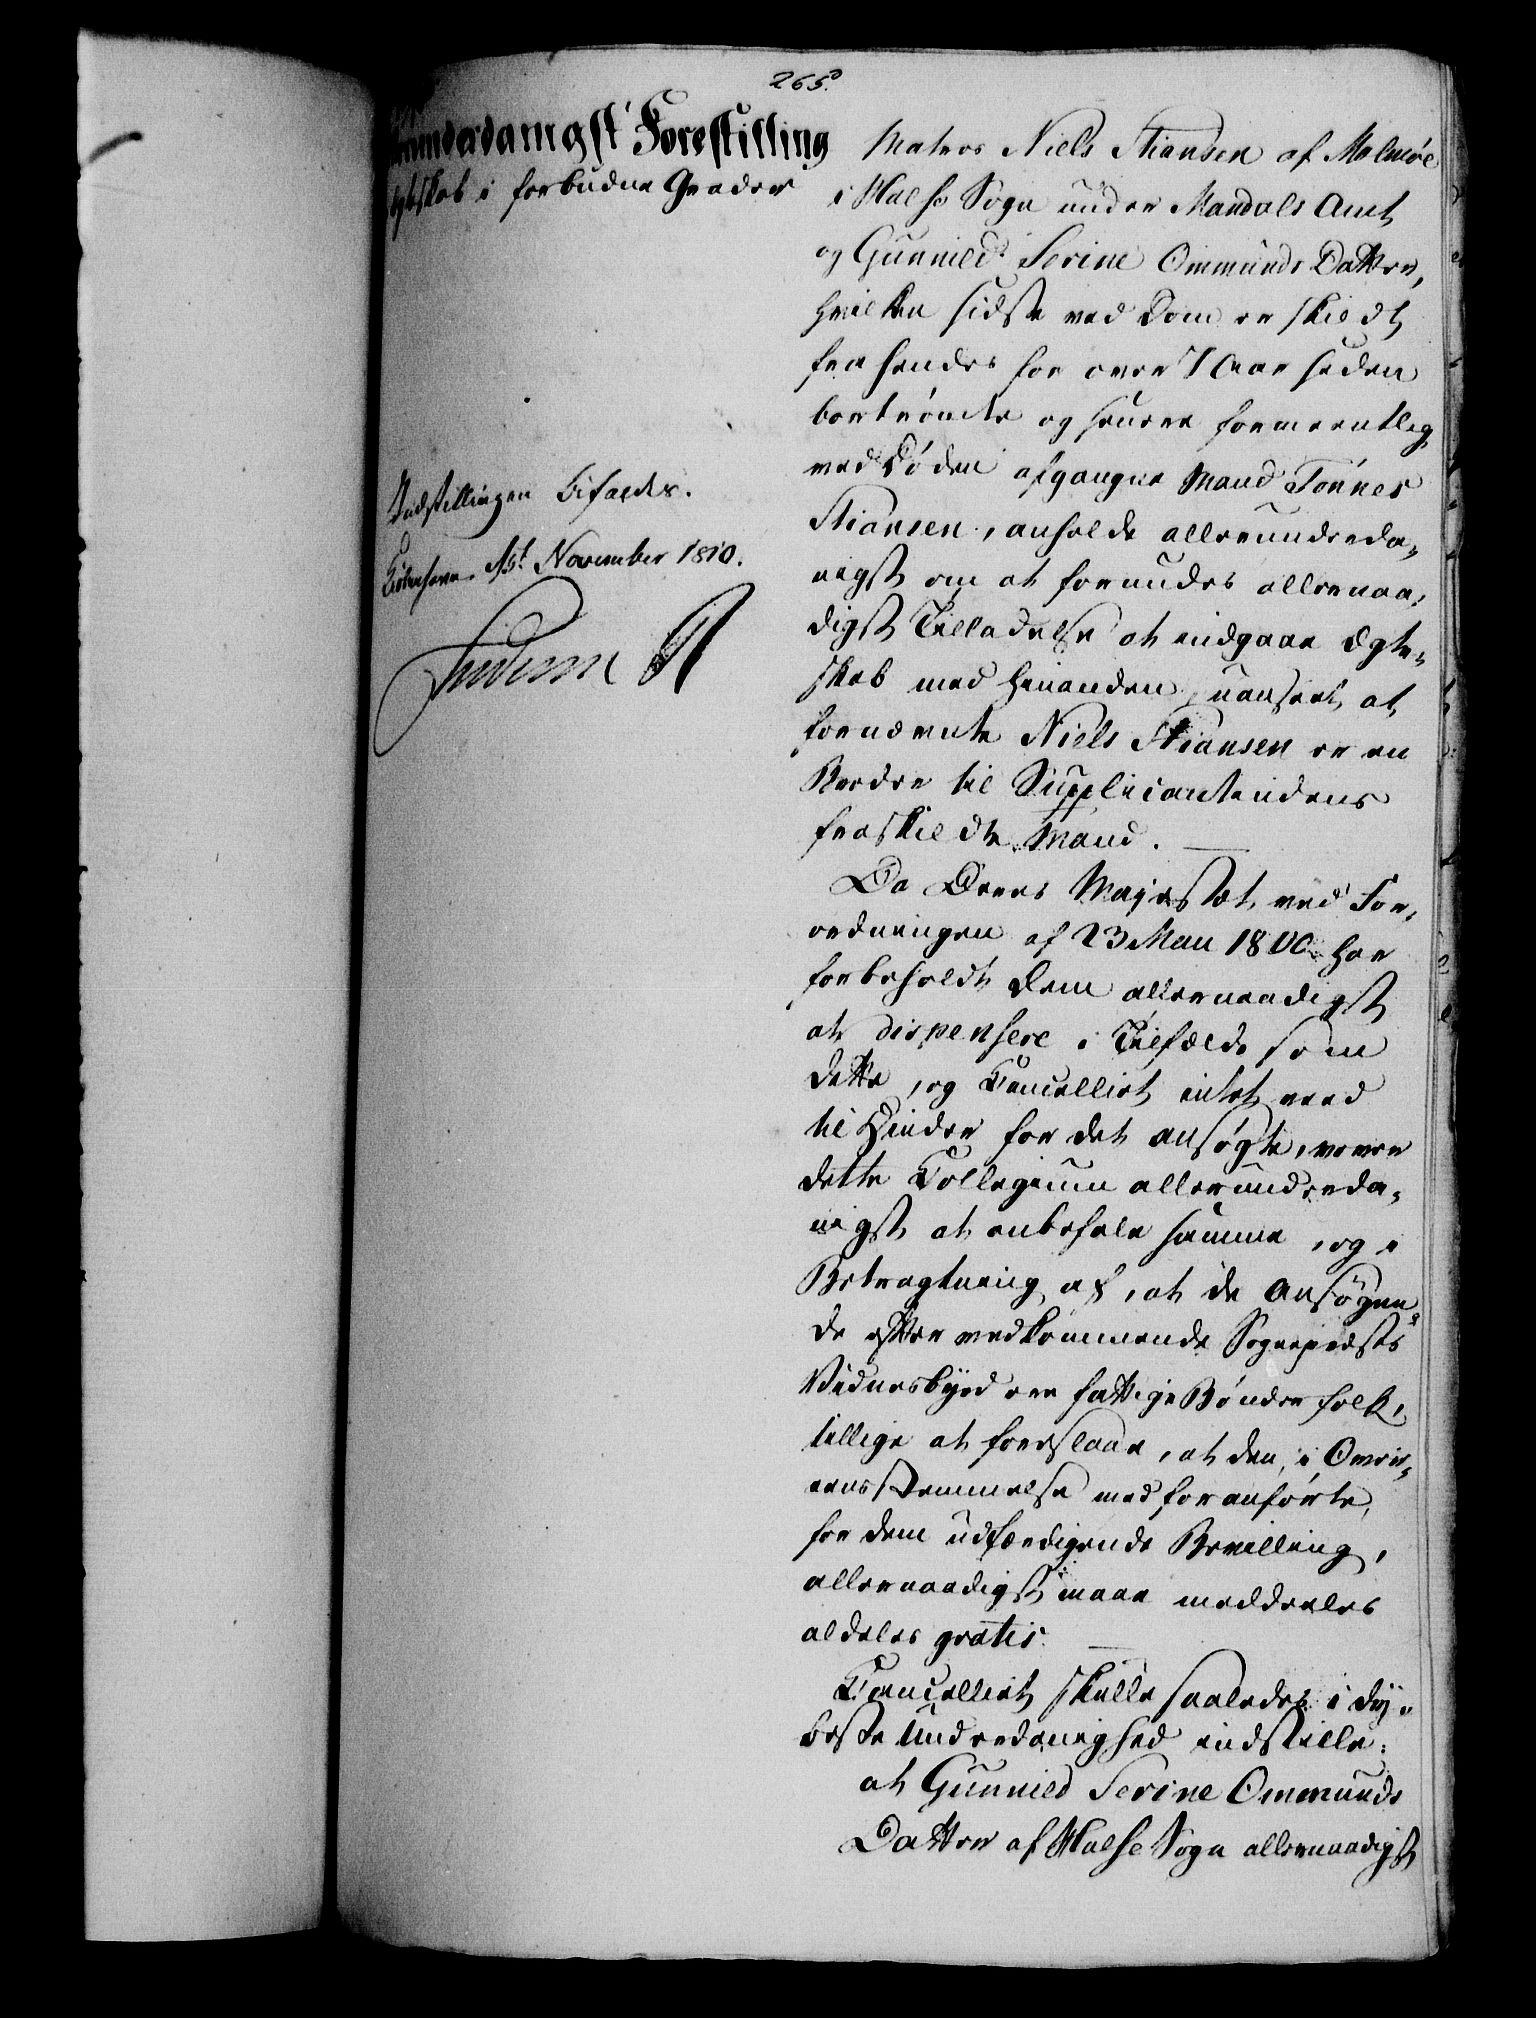 265.
Forestilling
Ægteskab i forbudne Grader
Indstillingen bifaldes.
Kiøbenhavn November 1810.
Matros Niels Stiansen af Malmøe
i Halse Sogn under Mandals Amt
og Gunnild Serine Ommunds Datter,
hvilken sidste ved Dom er skildt
fra hendes for over 7 Aar siden
bortrömte og senere formeentlig
ved Døden afgangne Mand Tönnes
Stiansen, anholde allerunderda-
nigst om at forundes allernaa-
digst Tilladelse at indgaae Ægte-
skab med hinanden, uanseet at
fornævnte Niels Stiansen er en
Broder til Supplicantindens
fraskildte Mand.
Da Deres Majestæt ved For-
ordningen af 23 Mai 1800 har
forbeholdt Dem allernaadigst
at dispensere i Tilfælde som
dette, og Cancelliet intet veed
til Hinder for det ansøgte, vover
dette Collegium allerunderda-
nigst at anbefale samme, og i
Betragtning af, at de Ansøgen-
de efter vedkommende Sognepræsts
Vidnesbyrd ere fattige Bønderfolk,
tillige at foreslaae, at den, i Over-
eensstemmelse med foranførte,
for dem udfærdigende Bevilling,
allernaadigst maae meddeeles
aldeles gratis.
Cancelliet skulle saaledes i dy-
beste Underdanighed indstille:
at Gunnild Serine Ommunds
Datter af Halse Sogn allernaadigst